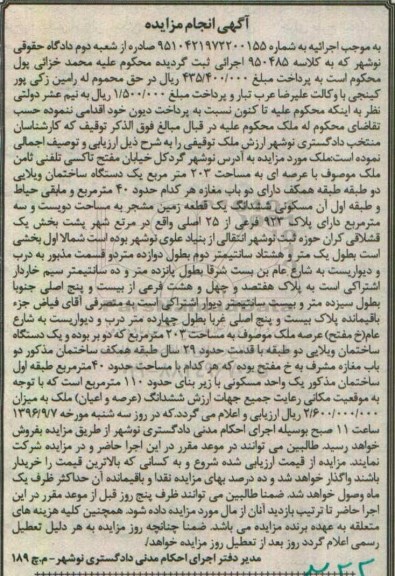 آگهی انجام مزایده
به موجب اجرائیه به شماره ۹۵۱۰۴۲۱۹۷۲۲۰۰۱۵۵ صادره از شعبه دوم دادگاه حقوقی
نوشهر که به کلاسه ۹۵۰۴۸۵ اجرائی ثبت گردیده محکوم علیه محمد خزائی پول
محکوم است به پرداخت مبلغ ۴۳۵/۴۰۰/۰۰۰ ریال در حق محموم له رامین زکی پور
کینجی با وکالت علیرضا عرب تبار و پرداخت مبلغ ۱/۵۰۰/۰۰۰ ریال به نیم عشر دولتی
نظر به اینکه محکوم علیه تا کنون نسبت به پرداخت دیون خود اقدامی ننموده حسب
تقاضای محکوم له ملک محکوم علیه در قبال مبالغ فوق الذکر توقیف که کارشناسان
منتخب دادگستری نوشهر ارزش ملک توقیفی را به شرح ذیل ارزیابی و توصیف اجمالی
نموده است:ملک مورد مزایده به آدرس نوشهر گردکل خیابان مفتح تاکسی تلفنی ثامن
ملک موصوف با عرصه ای به مساحت ۲۰۳ متر مربع یک دستگاه ساختمان ویلایی
دو طبقه طبقه همکف دارای دو باب مغازه هر کدام حدود ۴۰ مترمربع و مابقی حیاط
و طبقه اول آن مسکونی ششدانگ یک قطعه زمین مشجر به مساحت دویست و سه
مترمربع دارای پلاک ۹۲۳ فرعی از ۲۵ اصلی واقع در مرتع شهر پشت بخش یک
قشلاقی کران حوزه ثبت نوشهر انتقالی از بنیاد علوی نوشهر بوده است شمالا اول بخشی
است بطول یک متر و هشتاد سانتیمتر دوم بطول دوازده متردو قسمت مذبور به درب
و دیواریست به شارع عام بن بست شرقا بطول پانزده متر و ده سانتیمتر سیم خاردار
اشتراکی است به پلاک هفتصد و چهل و هشت فرعی از بیست و پنج اصلی جنوبا
بطول سیزده متر و بیست سانتیمتر دیوار اشتراکی است به متصرفی آقای فیاض جزء
باقیمانده پلاک بیست و پنج اصلی غربا بطول چهارده متر درب و دیواریست به شارع
عام(خ مفتح) عرصه ملک موصوف به مساحت ۲۰۳ مترمربع که دو بر بوده و یک دستگاه
ساختمان ویلایی دو طبقه با قدمت حدود ۲۹ سال طبقه همکف ساختمان مذکور دو
باب مغازه مشرف به خ مفتح بوده که هر کدام با مساحت حدود ۴۰مترمربع طبقه اول
ساختمان مذکور یک واحد مسکونی با زیر بنای حدود ۱۱۰ مترمربع است که با توجه
به موقعیت مکانی رعایت جمیع جهات ارزش ششدانگ (عرصه و اعیان) ملک به میزان
۲/۶۰۰/۰۰۰/۰۰۰ ریال ارزیابی و اعلام می گردد.که در روز سه شنبه مورخه ۱۳۹۶/۹/۷
ساعت ۱۱ صبح بوسیله اجرای احکام مدنی دادگستری نوشهر از طریق مزایده بفروش
خواهد رسید. طالبین می توانند در موعد مقرر در این اجرا حاضر و در مزایده شرکت
نمایند. مزایده از قیمت ارزیابی شده شروع و به کسانی که بالاترین قیمت را خریدار
باشند واگذار خواهد شد و ده درصد بهای مزایده نقدا و باقیمانده آن حداکثر ظرف یک
ماه وصول خواهد شد. ضمنا طالبین می توانند ظرف پنج روز قبل از موعد مقرر در این
اجرا حاضر تا ترتیب بازدید آنان از مال مورد مزایده داده شود. همچنین کلیه هزینه های
متعلقه به عهده برنده مزایده می باشد. ضمنا چنانچه روز مزایده به هر دلیل تعطیل
رسمی اعلام گردد روز بعد از تعطیل روز مزایده خواهد/
مدیر دفتر اجرای احکام مدنی دادگستری نوشهر - م.چ ۱۸۹